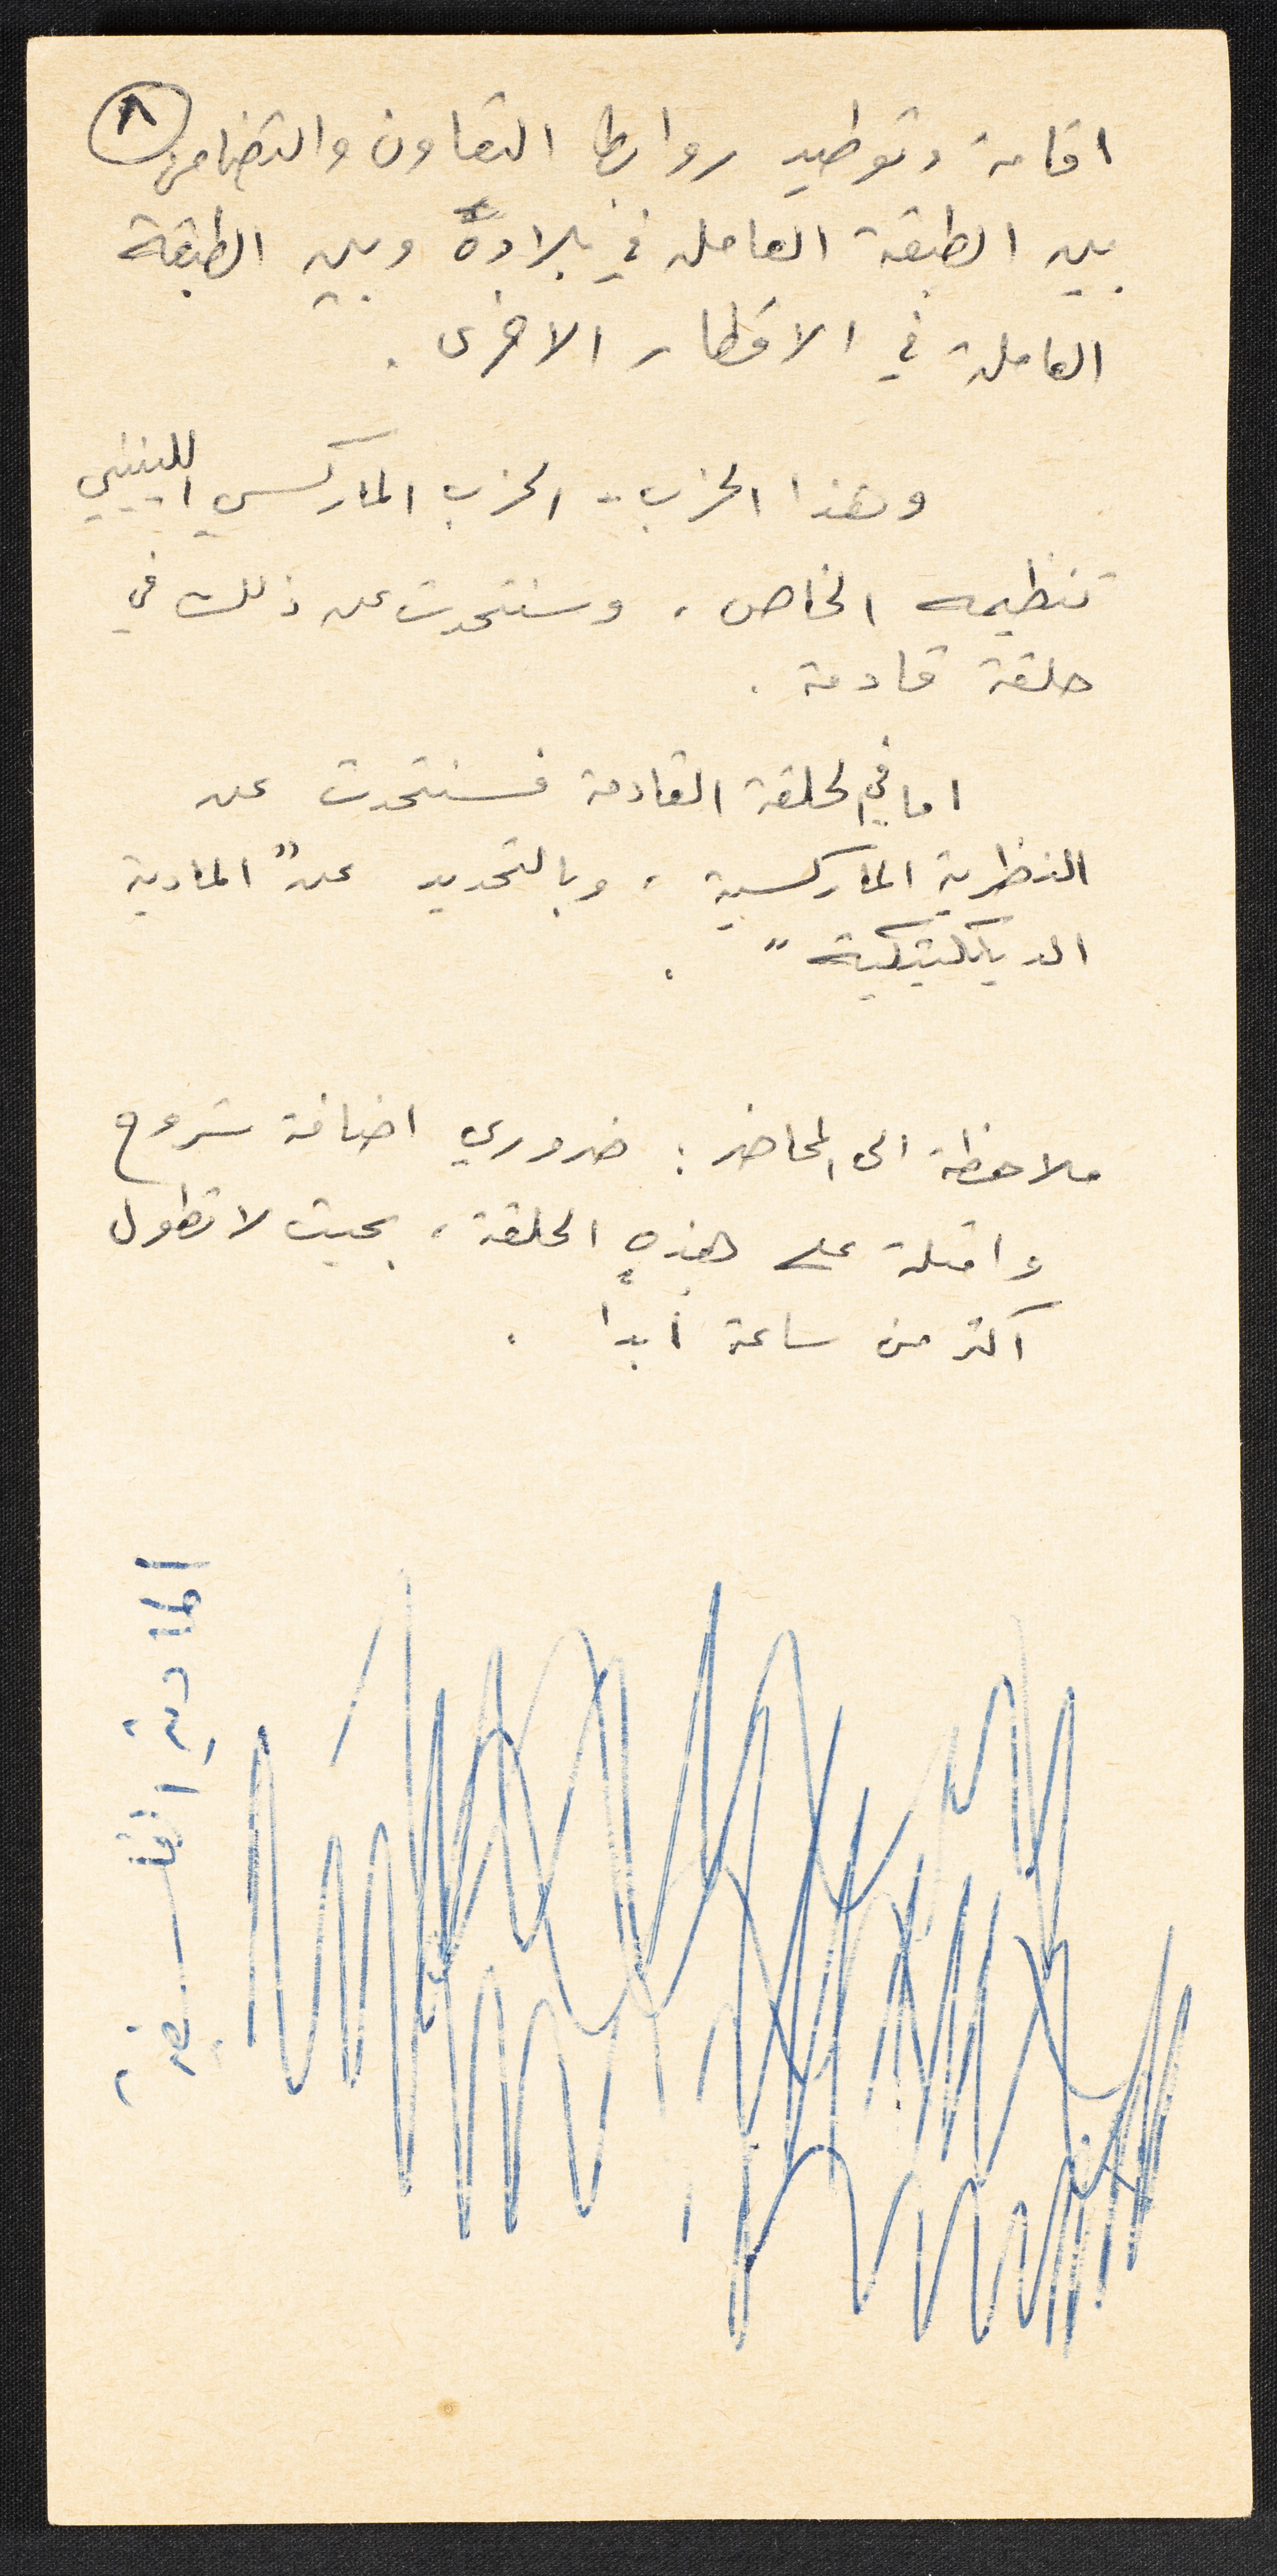 ٨
اقامة وتوطيد روابط التعاون والتضامن
بين الطبقة العاملة في بلاده وبين الطبقة
العاملة في الاقطار الاخرى .
وهذا الحزب - الحزب الماركسي اللينيني
تنظيمه الخاص ، وسنتحدث عن ذلك في
حلقة قادمة .
اما في لحلقة القادمة فسنتحدث عن
النظرية الماركسية ، وبالتحديد عن " المادية
الديالكتيكية " .
ملاحظة الى المحاضر : ضروري اضافة شروح
وامثلة على هذه الحلقة ، بحيث لا تطول
اكثر من ساعة أبدا .
المادية